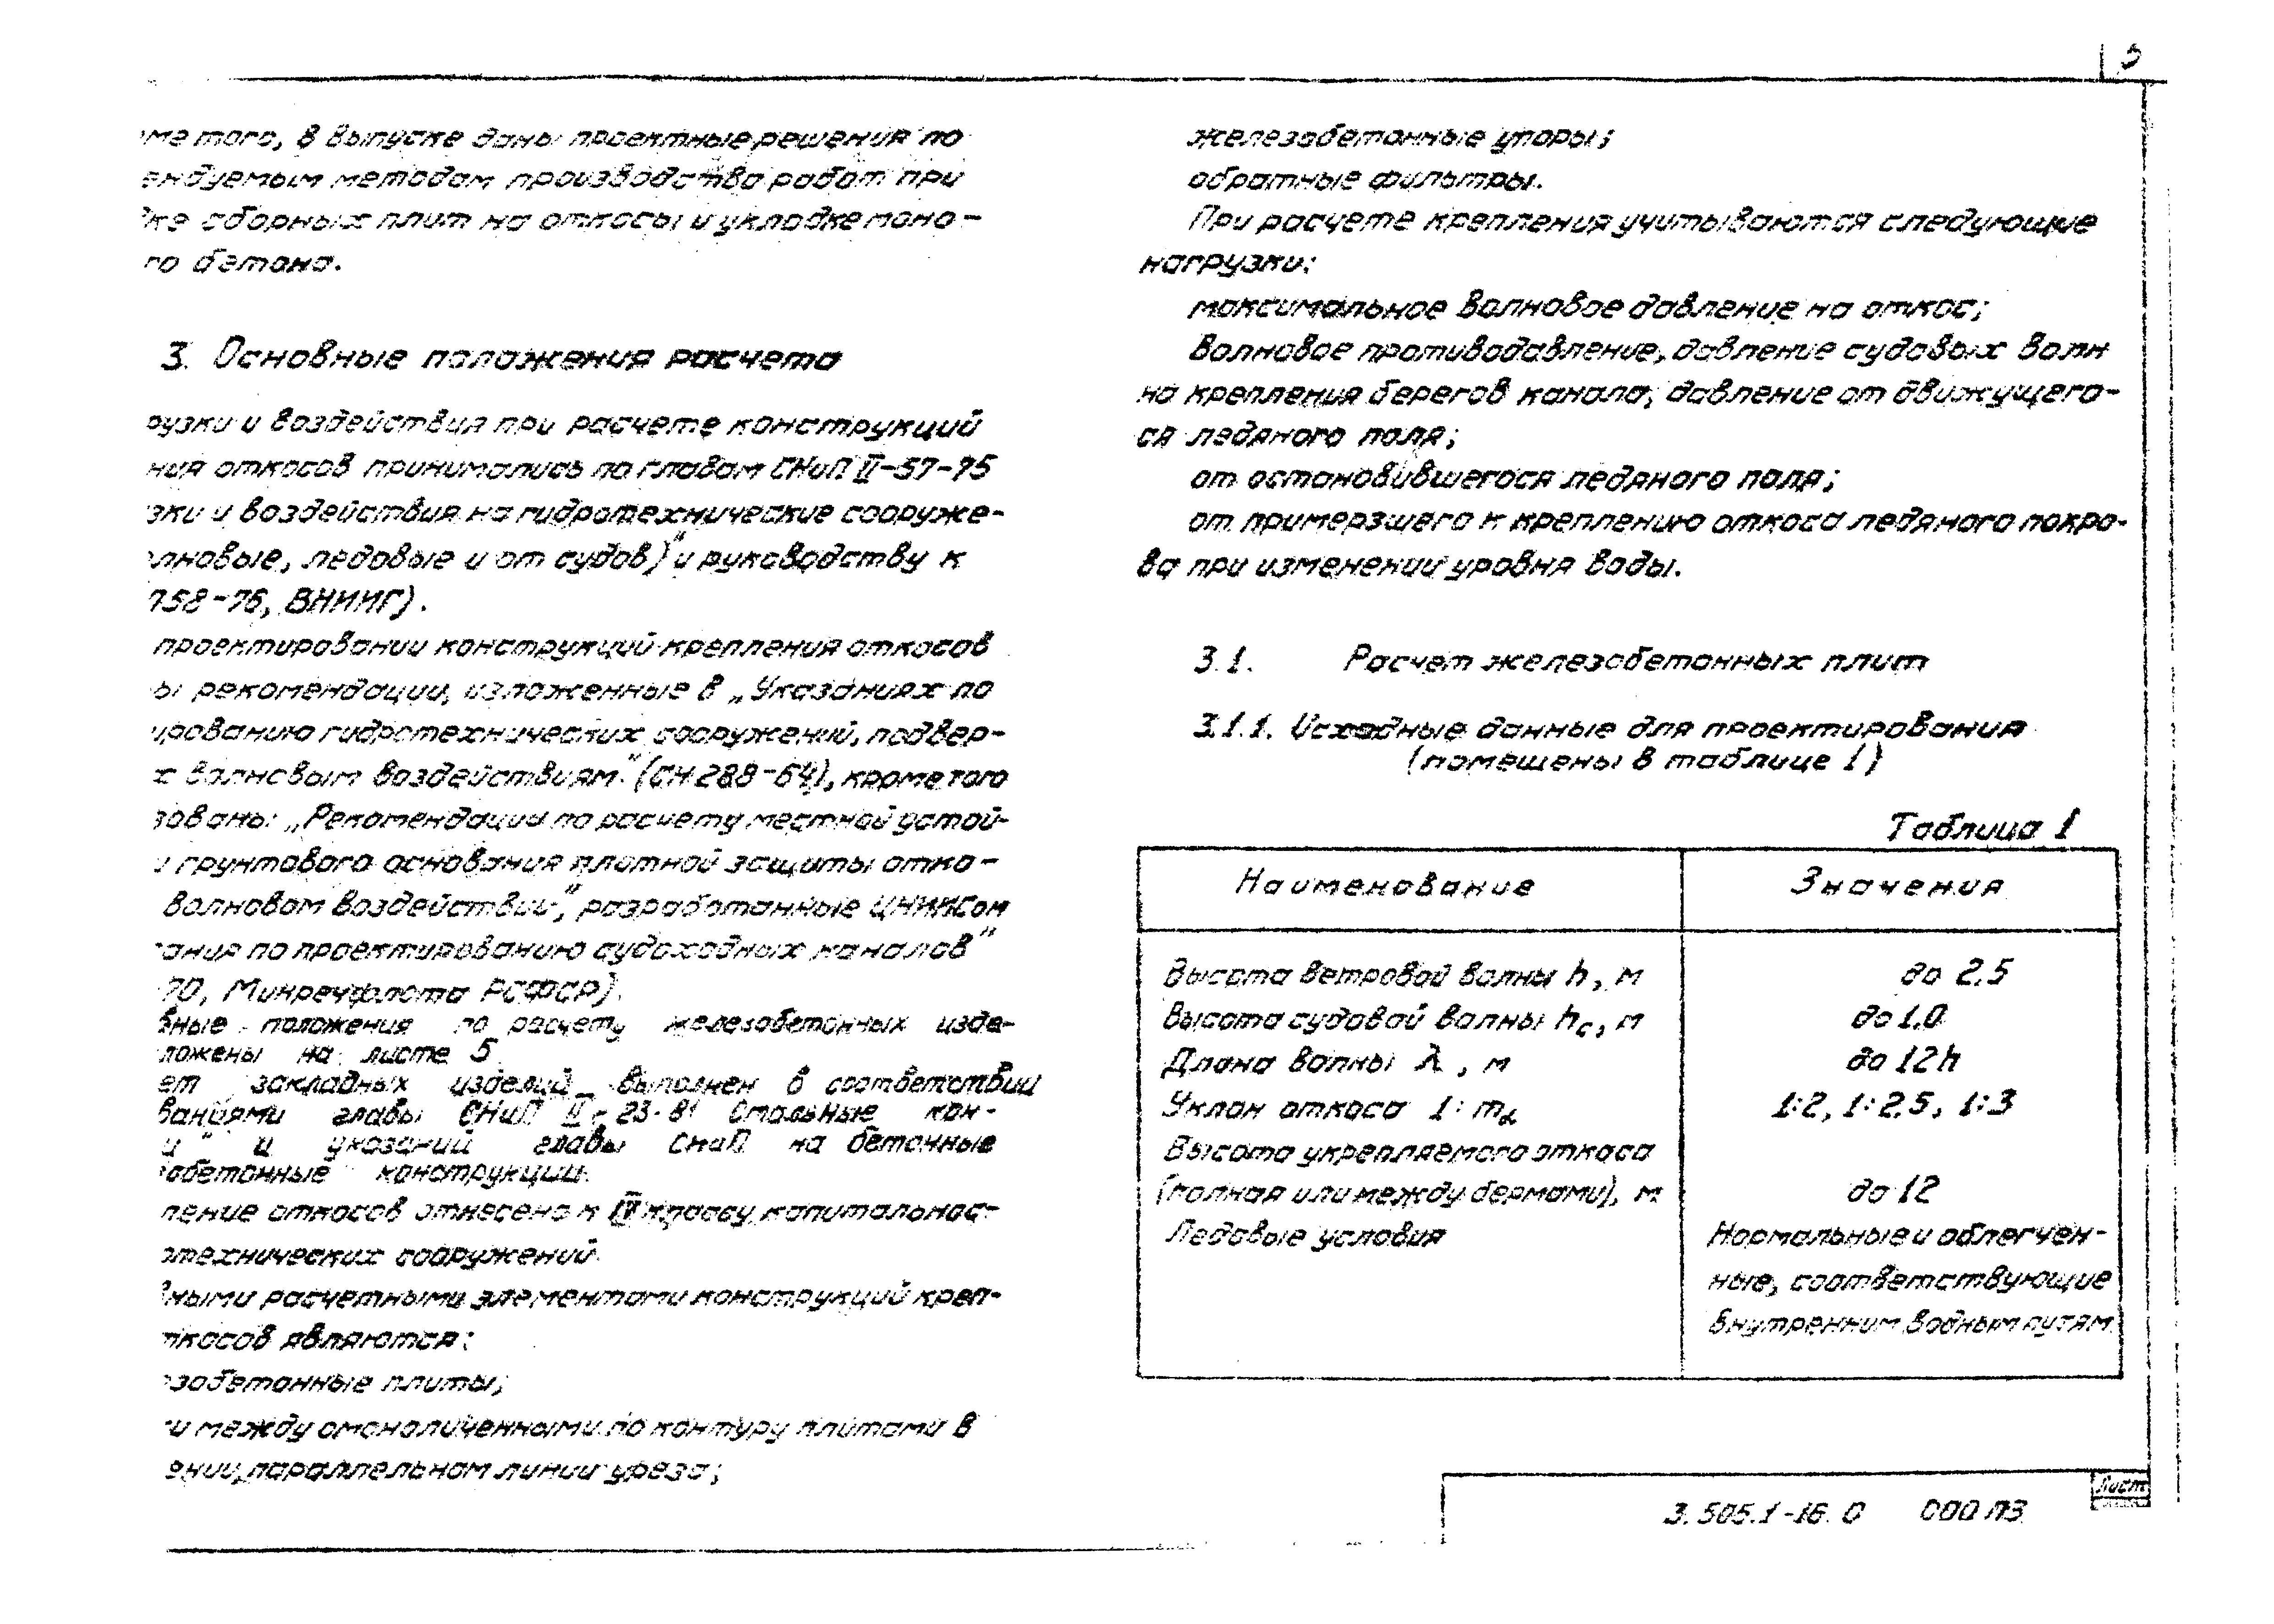 5
ме того, в выпуске даны проектные решения по
ендуемым методам производства работ при
ке сборных плит на откосы и укладке моно-
го бетона.
3. Основные положения расчета
рузки и воздействия при расчете конструкций
ния откосов принимались по главам СНиП II-57-75
зки и воздействия на гидротехнические сооруже-
лновые, ледовые и от судов)" и руководству к
П58-76, ВНИИГ).
проектировании конструкций крепления откосов
ы рекомендации, изложенные в „Указаниях по
ированию гидротехнических сооружений, подвер-
х волновым воздействиям" (СН 288-64), кроме того
зованы: „Рекомендации по расчету местной устой-
и грунтового основания плитной защиты отко-
волновом воздействии", разработанные ЦНИИСом
ания по проектированию судоходных каналов"
70, Минречфлота РСФСР).
вные положения по расчету железобетонных изде-
ложены на листе 5
ет закладных изделий выполнен в соответствии
ваниями главы СНиП II-23-81 Стальные кон-
и" и указаний главы СНиП на бетонные
обетонные конструкции.
ление откосов отнесено к IV классу капитальнос-
отехнических сооружений.
вными расчетными элементами конструкций креп-
ткосов являются:
зобетонные плиты;
и между омоноличенными по контуру плитами в
ении, параллельном линии уреза;
железобетонные упоры;
обратные фильтры.
При расчете крепления учитываются следующие
нагрузки:
максимальное волновое давление на откос;
волновое противодавление, давление судовых волн
на крепления берегов канала, давление от движущего-
ся ледяного поля;
от остановившегося ледяного поля;
от примерзшего к креплению откоса ледяного покро-
ва при изменении уровня воды.
3.1. Расчет железобетонных плит
3.1.1. Исходные данные для проектирования
(помещены в таблице 1)
Таблица 1
Наименование Значения
Высота ветровой волны h, м до 2.5
Высота судовой волны hс, м до 1.0
Длина волны λ, м до 12h
Уклон откоса 1:mα 1:2, 1:2.5, 1:3
Высота укрепляемого откоса
(полная или между бермами), м до 12
Ледовые условия Нормальные и облегчен-
ные, соответствующие
внутренним водным путям
Лист
3.505.1-16.0 000 ПЗ